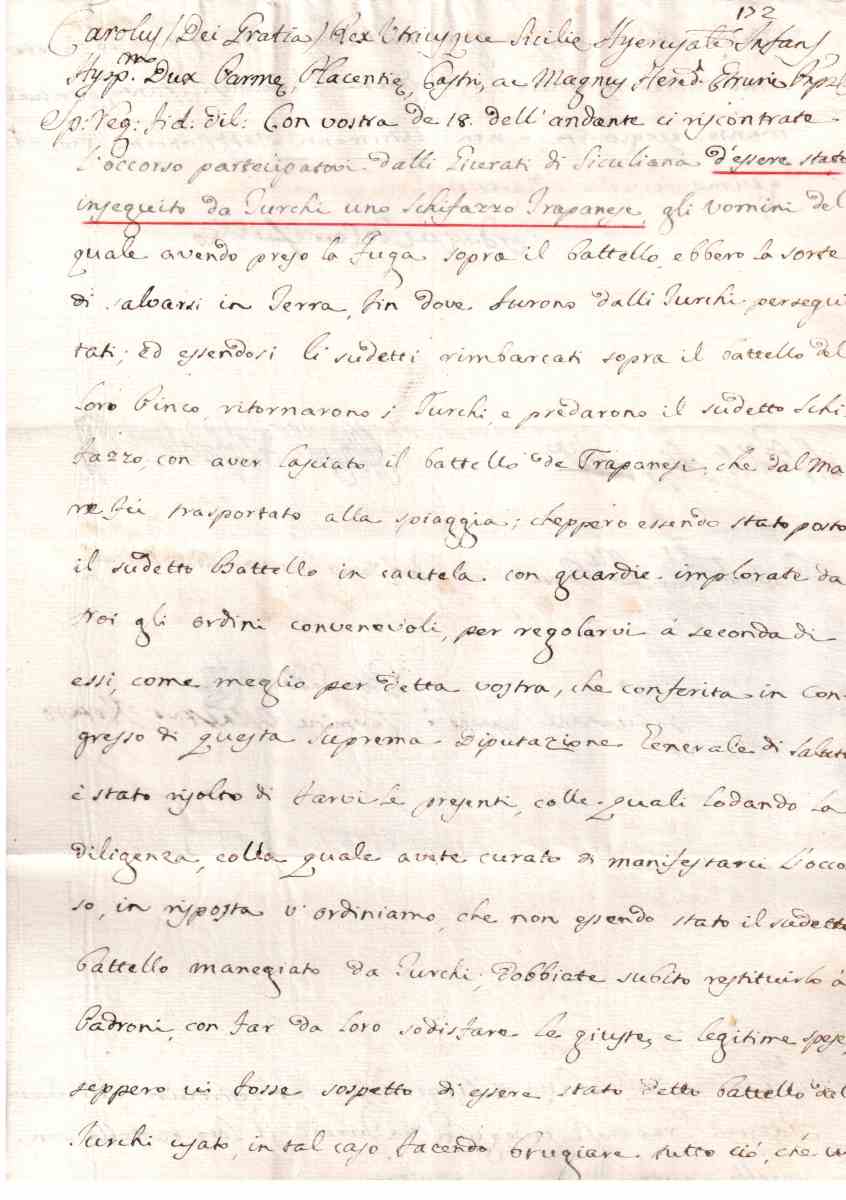 172
Carolus (Dei Gratia) Rex Utriusque Sicilie Hyerusalē Infans
Hysp.m Dux Parmę, Placentię, Castri, ac Magnus Hered. Etrurię
Sp: Reg: fid: dil: Con vostra de 18 dell'andante ci riscontrate
l'occorso partecipatovi dalli Giurati di Siculiana d'essere stato
inseguito da Turchi uno Schifazzo Trapanese, gli uomini del
quale avendo preso la Fuga sopra il battello, ebbero la sorte
di salvarsi in Terra, fin dove furono dalli Turchi persegui
tati; Ed essendosi li sudetti rimbarcati sopra il battello del
loro Pinco, ritornarono i Turchi, e predarono il sudetto Schi
fazzo, con aver lasciato il battello de Trapanesi, che dal Ma
re fù trasportato alla spiaggia; cheppero essendo stato posto
il sudetto Battello in cautela con guardie implorate da
Noi gli ordini convenevoli, per regolarvi á seconda di
essi, come meglio per detta vostra, che conferita in Con
gresso di questa Suprema Diputazione Generale di Salute
è stato risolto di farvi le presenti, colle quali lodando la
diligenza, colla quale avete curato di manifestarci l'occor
so, in risposta v'ordiniamo, che non essendo stato il sudetto
battello manegiato da Turchi, dobbiate subito restituirlo á
Padroni, con far da loro sodisfare le giuste, e legitime spese,
seppero vi fosse sospetto di essere stato detto battello dal
Turchi usato, in tal caso facendo brugiare tutto ciò, che vi